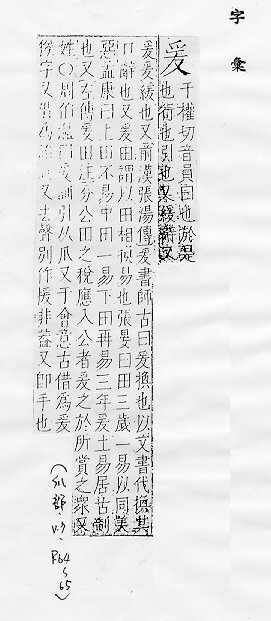 字彙
爰 于權切音員曰也於是
也行也引也又緩辭又
爰爰緩也又前漢張湯傳爰書師古曰爰換也以文書代換其
口辭也又爰田謂以田相換易也張晏曰田三歲一易以同美
惡孟康曰上田不易中田一易下田再易三年爰土易居古制
也又左傳爰田註分公田之稅應入公者爰之於所賞之衆又
姓〇周伯溫曰爰訓引从爪又于會意古借為爰
又去聲別作援非 又即手也
(爪部. V.7. P.64~65)